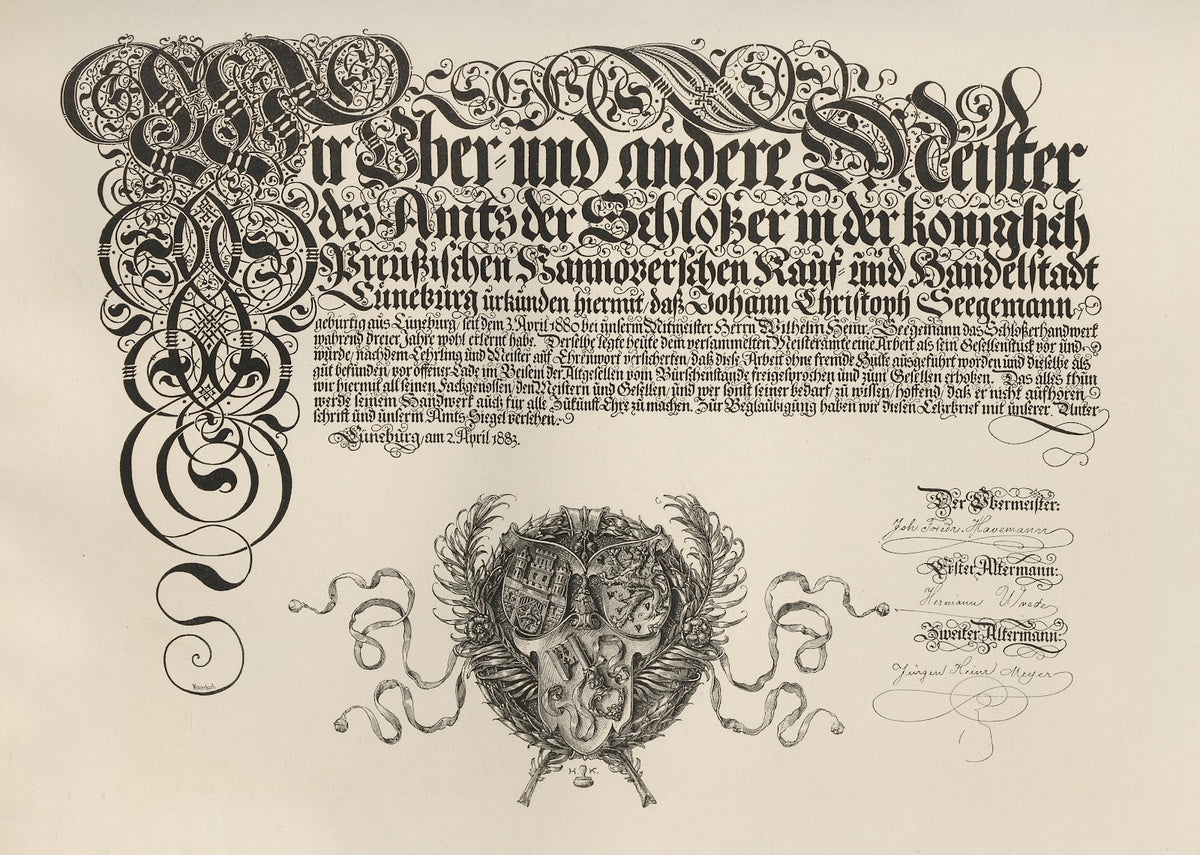 Wir Ober- und andere Meister
des Amts der Schloßer in der königlich
Preußischen Hannoverschen Kauf- und Handelstadt
Lüneburg urkunden hiermit, daß Johann Christoph Seegemann
gebürtig aus Lüneburg, seit dem 3. April 1880 bei unserm Mitmeister Herrn Wilhelm Heinr. Seegemann das Schloßerhandwerk
während dreier Jahre wohl erlernt habe. Derselbe legte heute dem versammelten Meisteramte eine Arbeit als sein Gesellenstück vor und
würde, nachdem Lehrling und Meister auf Ehrenwort versicherten, daß diese Arbeit ohne fremde Hülfe ausgeführt worden und dieselbe als
gut befunden, vor offener Lade im Beisein der Altgesellen vom Bürschenstande freigesprochen und zum Gesellen erhoben. Das alles thun
wir hiermit all seinen Fachgenossen, den Meistern und Gesellen, und wer sonst seiner bedarf, zu wissen, hoffend, daß er nicht aufhören
werde seinem Handwerk auch für alle Zükunft Ehre zu machen. Zür Beglaubigung haben wir diesen Lehrbrief mit unserer Unter
schrift und unserm Amts-Siegel versehen.
Lüneburg, am 2. April 1883.
Der Obermeister:
Joh. Friedr. Havemann
Erster Altermann:
Hermann Wrede
Zweiter Altermann:
Jürgen Heinr Meyer
H K.